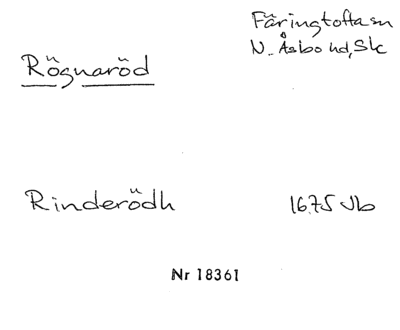 Färingtofta sn
N. Åsbo hd, Sk
Rögnaröd
Rinderödh 1675 Jb
Nr 18361